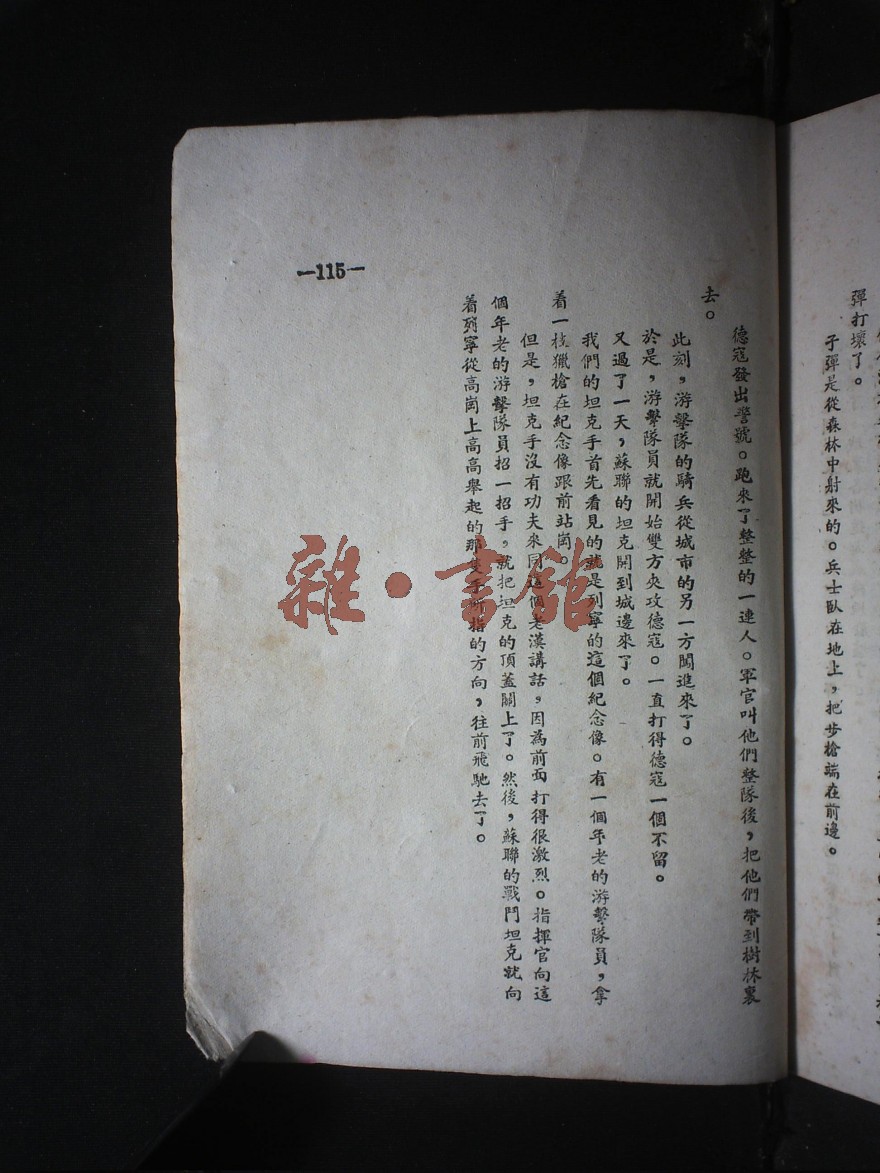 彈打壞了。
子彈是從森林中射來的。兵士臥在地上，把步槍端在前邊。
德寇發出警號。跑來了整整的一連人。軍官叫他們整隊後，把他們帶到樹林裏
去。
此刻，游擊隊的騎兵從城市的另一方闖進來了。
於是，游擊隊員就開始雙方夾攻德寇。一直打得德寇一個不留。
又過了一天，蘇聯的坦克開到城邊來了。
我們的坦克手首先看見的就是列寧的這個紀念像。有一個年老的游擊隊員，拿
着一枝獵槍在紀念像跟前站崗。
但是，坦克手沒有功夫來同這個老漢講話，因為前面打得很激烈。指揮官向這
個年老的游擊隊員招一招手，就把坦克的頂蓋關上了。然後，蘇聯的戰鬥坦克就向
着列寧從高崗上高高舉起的那隻手所指的方向，往前飛馳去了。
—115—
雜·書館